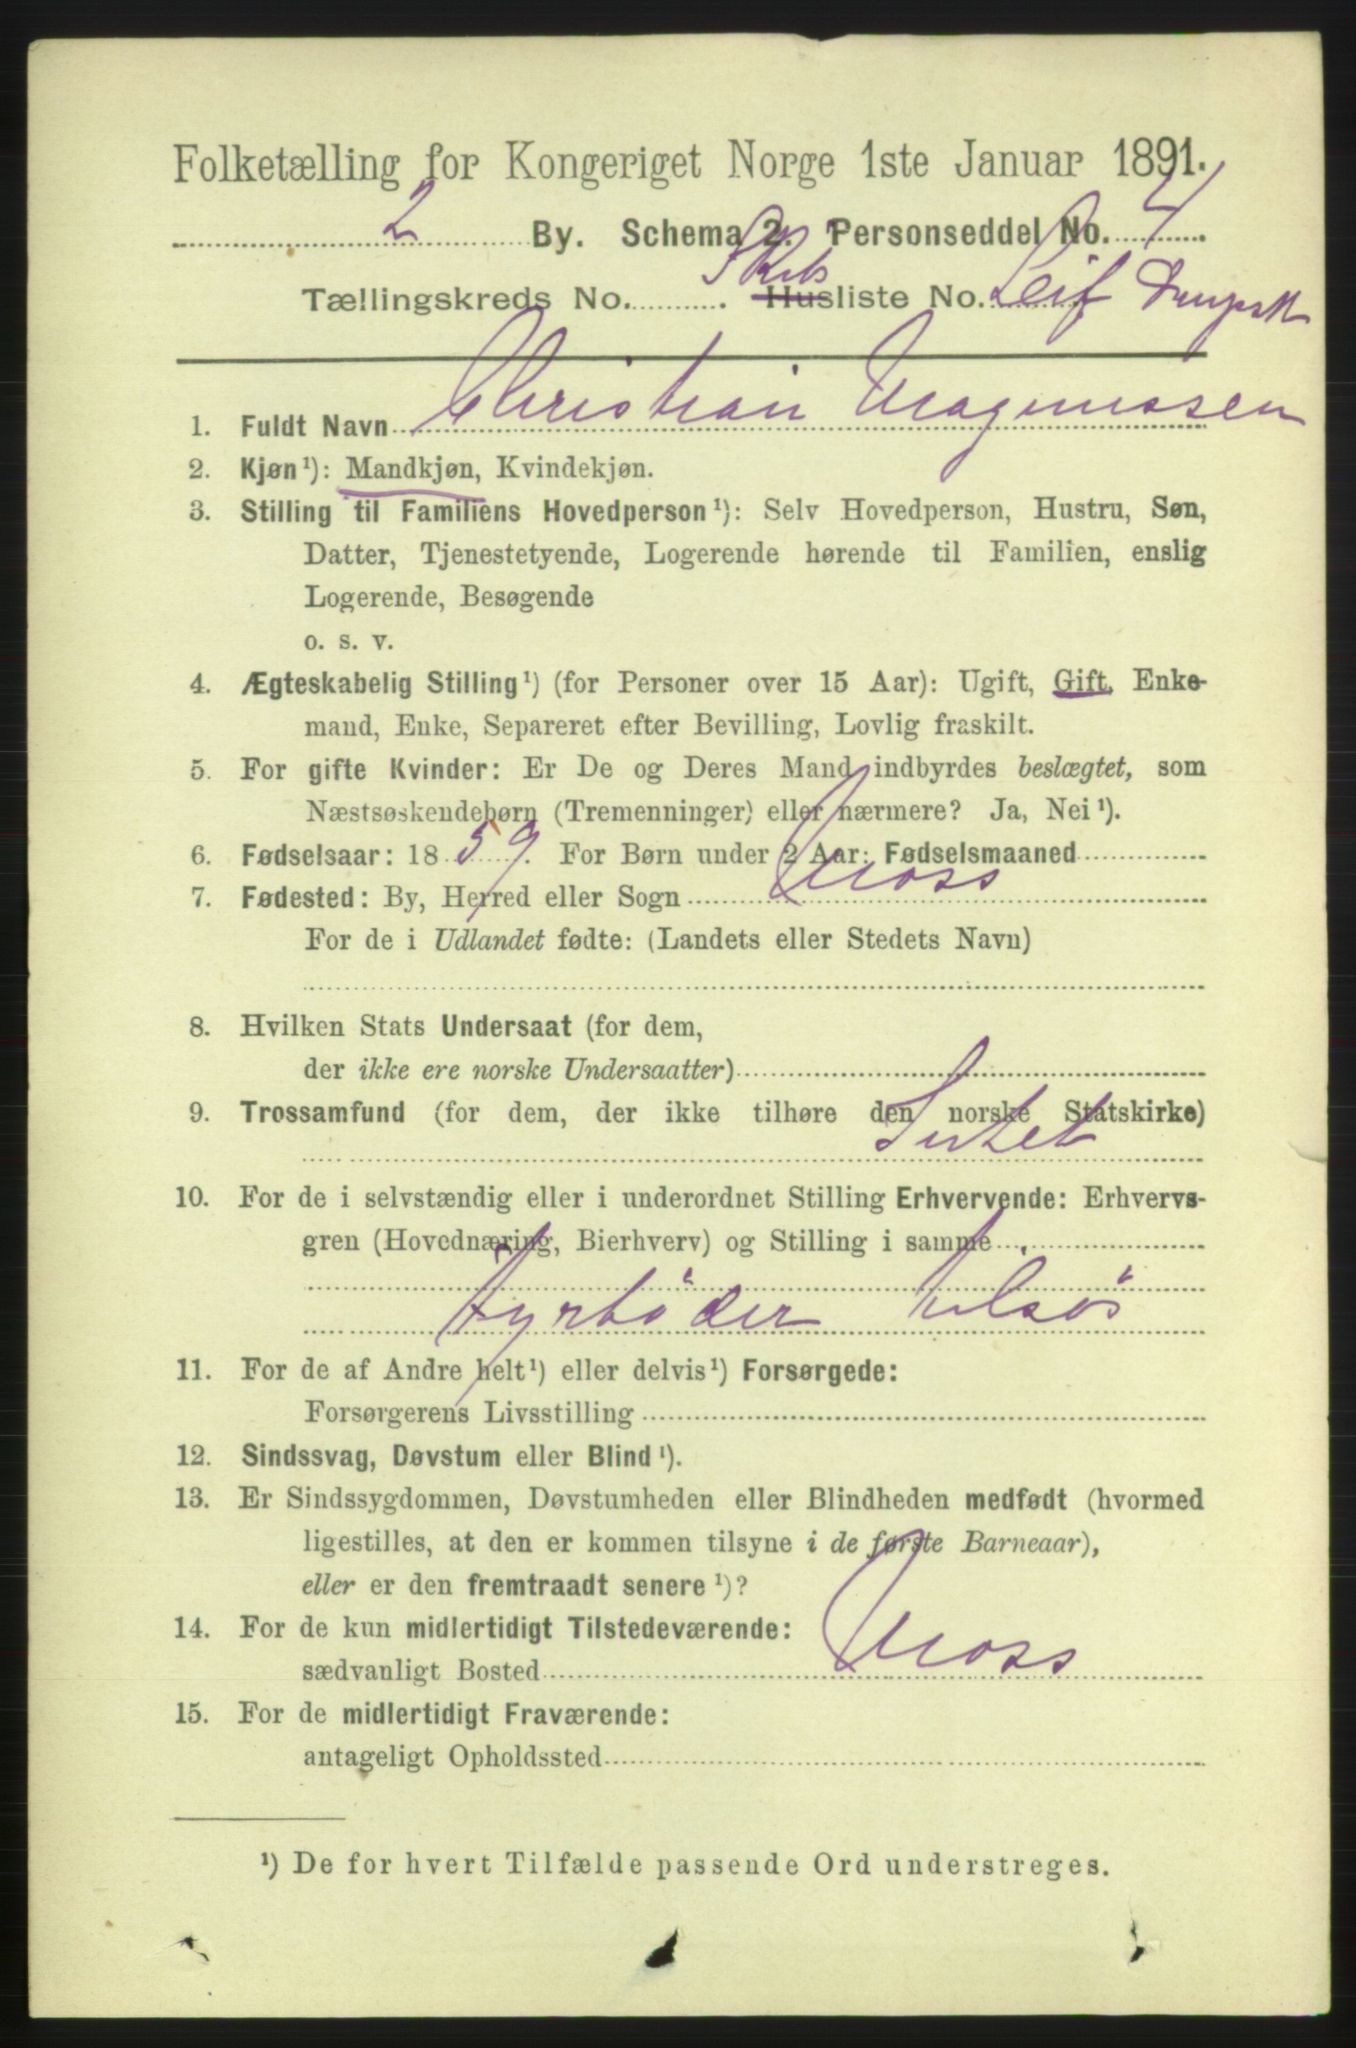 Folketælling for Kongeriget Norge 1ste Januar 1891.
2 By. Schema 2. Personseddel No. 4
Tællingskreds No. . Skibs Husliste No. Leif
1. Fuldt Navn Christian Magnussen
2. Kjøn ¹): Mandkjøn, Kvindekjøn.
3. Stilling til Familiens Hovedperson ¹): Selv Hovedperson, Hustru, Søn,
Datter, Tjenestetyende, Logerende hørende til Familien, enslig
Logerende, Besøgende
o. s. v.
4. Ægteskabelig Stilling ¹) (for Personer over 15 Aar): Ugift, Gift, Enke-
mand, Enke, Separeret efter Bevilling, Lovlig fraskilt.
5. For gifte Kvinder: Er De og Deres Mand indbyrdes beslægtet, som
Næstsøskendebørn (Tremenninger) eller nærmere? Ja, Nei ¹).
6. Fødselsaar: 1859. For Børn under 2 Aar: Fødselsmaaned
7. Fødested: By, Herred eller Sogn Moss
For de i Udlandet fødte: (Landets eller Stedets Navn)
8. Hvilken Stats Undersaat (for dem,
der ikke ere norske Undersaatter)
9. Trossamfund (for dem, der ikke tilhøre den norske Statskirke)
Intet
10. For de i selvstændig eller i underordnet Stilling Erhvervende: Erhvervs-
gren (Hovednæring, Bierhverv) og Stilling i samme
Fyrböder tilsös
11. For de af Andre helt ¹) eller delvis ¹) Forsørgede:
Forsørgerens Livsstilling
12. Sindssvag, Døvstum eller Blind ¹).
13. Er Sindssygdommen, Døvstumheden eller Blindheden medfødt (hvormed
ligestilles, at den er kommen tilsyne i de første Barneaar),
eller er den fremtraadt senere ¹)?
14. For de kun midlertidigt Tilstedeværende:
sædvanligt Bosted Moss
15. For de midlertidigt Fraværende:
antageligt Opholdssted
¹) De for hvert Tilfælde passende Ord understreges.